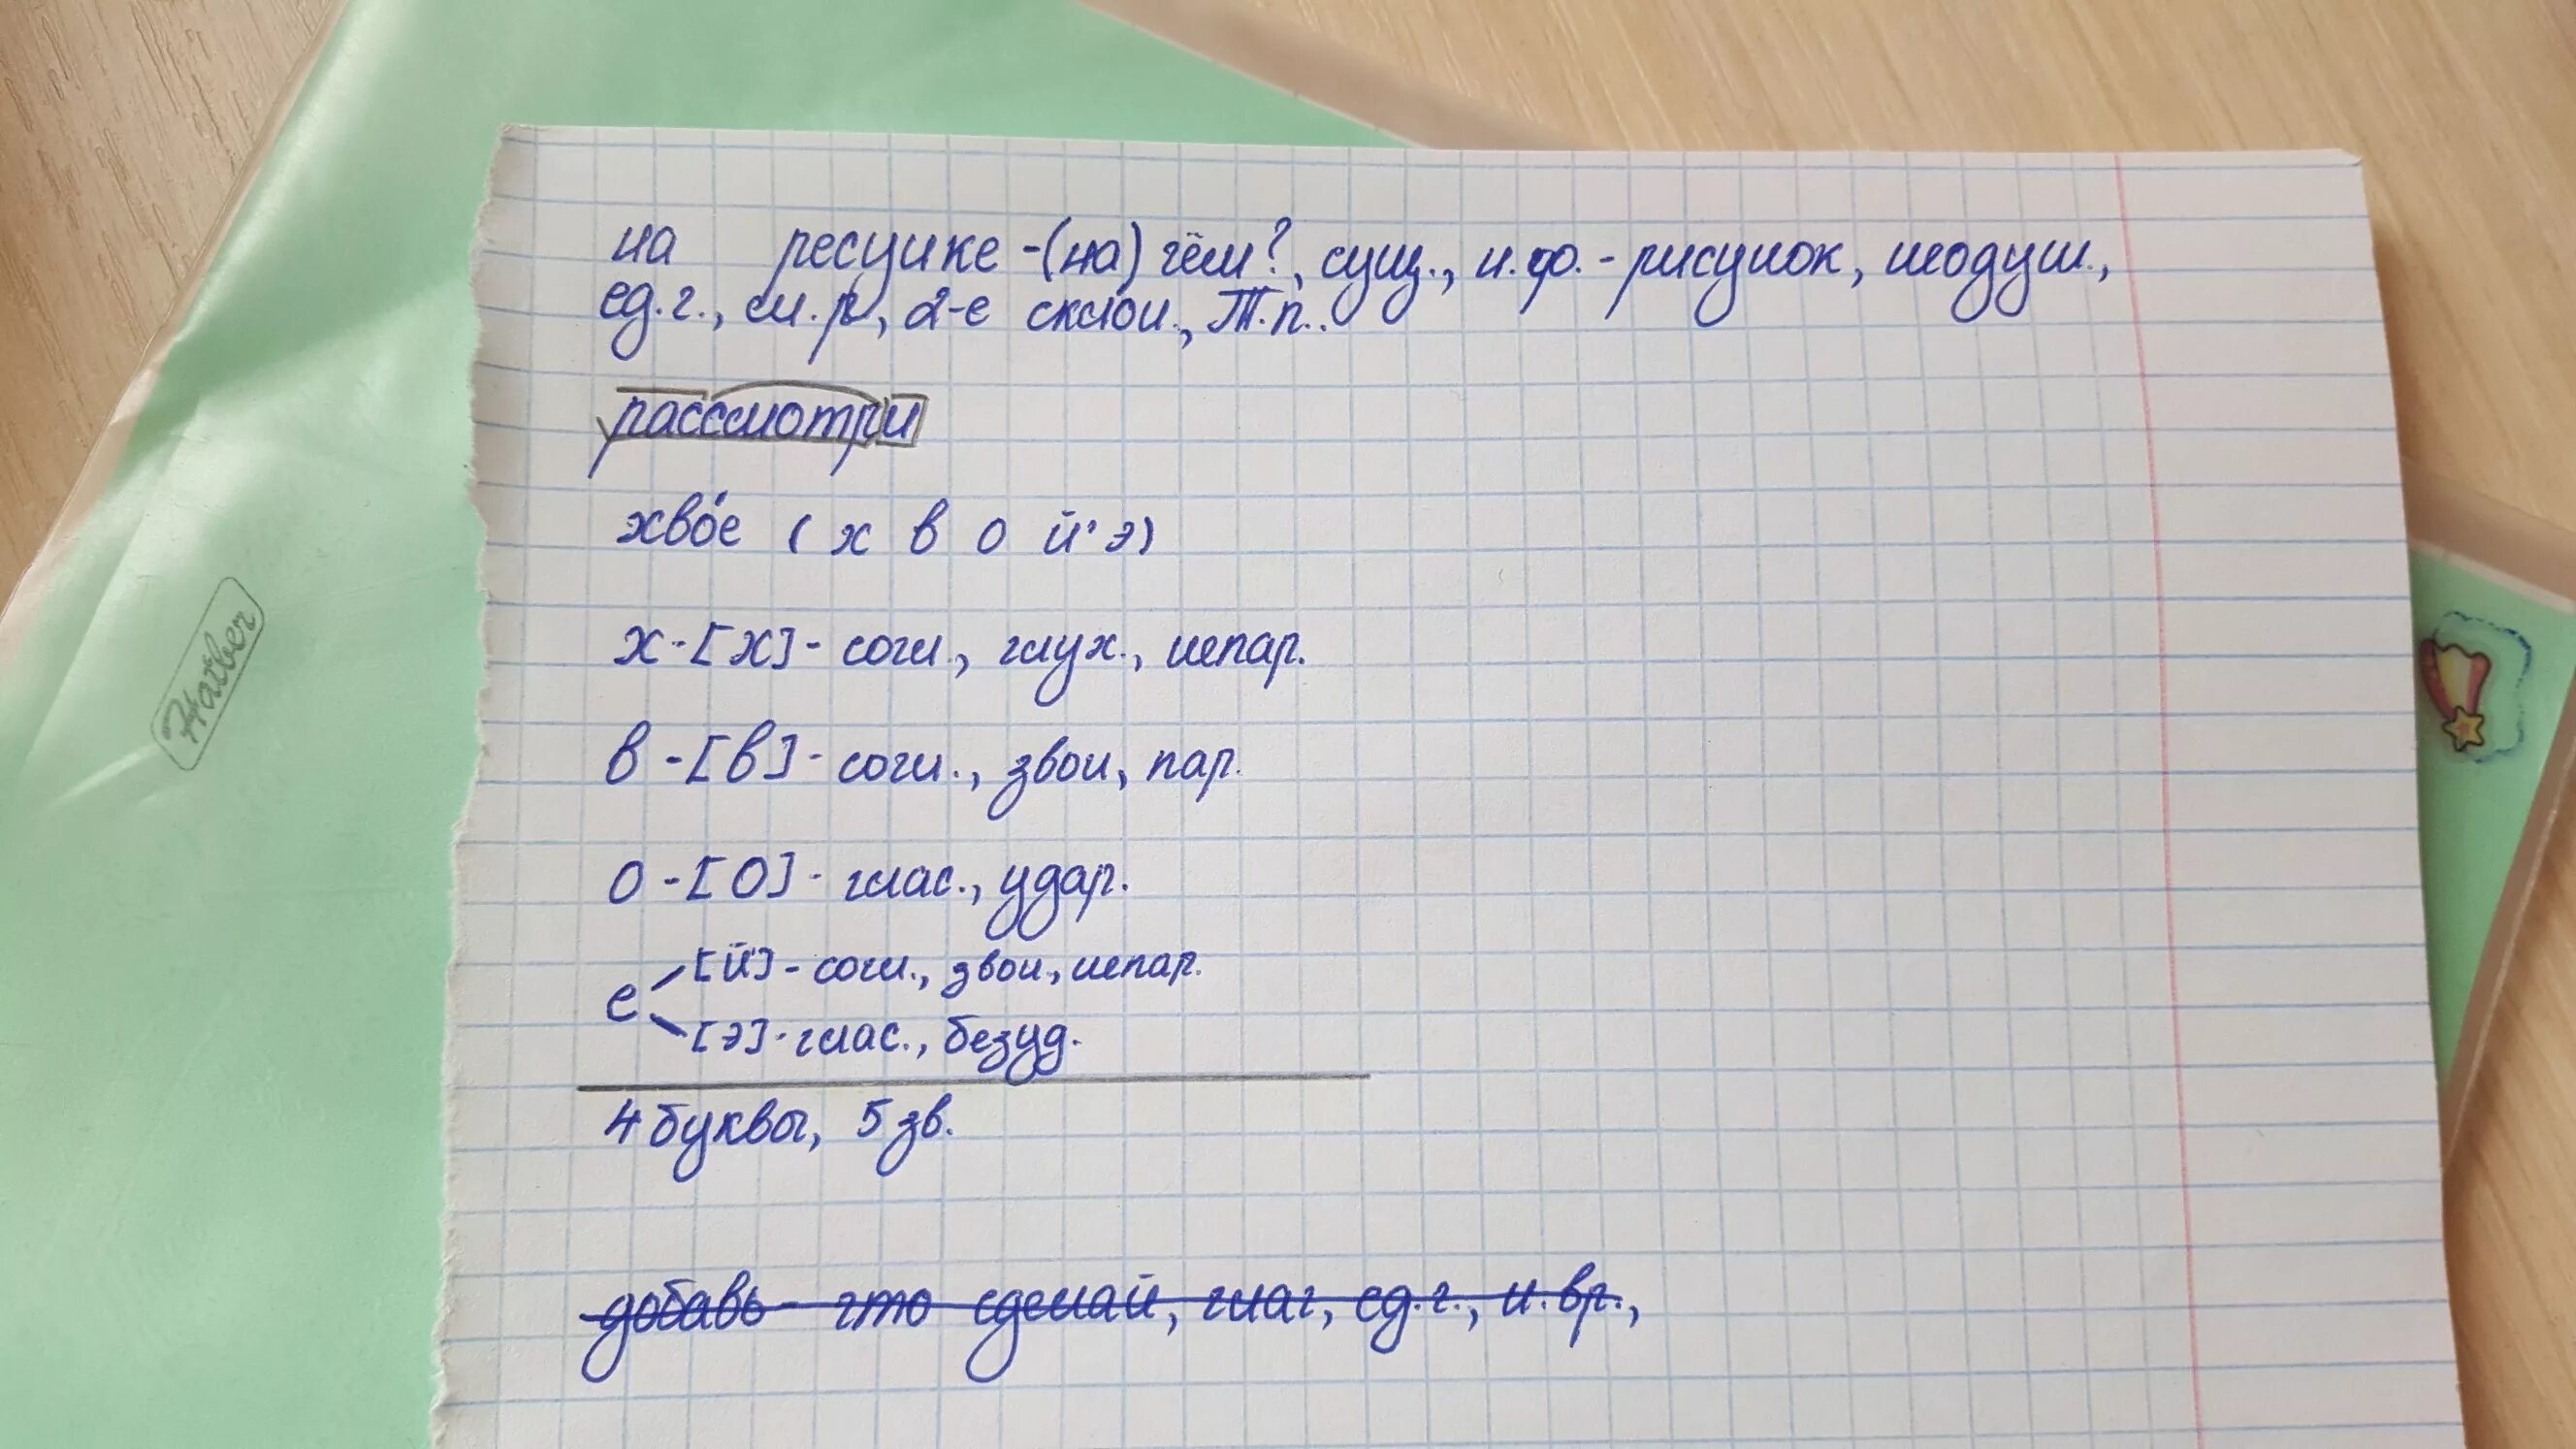 на ресунке -(на) чём?, сущ., н.ф. - рисунок, неодуш.,
ед.ч., м.р, 2-е склон., Т.п..
рассмотри
хво́е ( х в о й' э)
х - [х] - согл., глух., непар.
в - [в] - согл., звон, пар.
о - [о] - глас., удар.
е [й'] - согл., звон., непар.
[э] - глас., безуд.
4 буквы, 5 зв.
добавь - что сделай, глаг, ед.ч., н.вр.,
Hatber